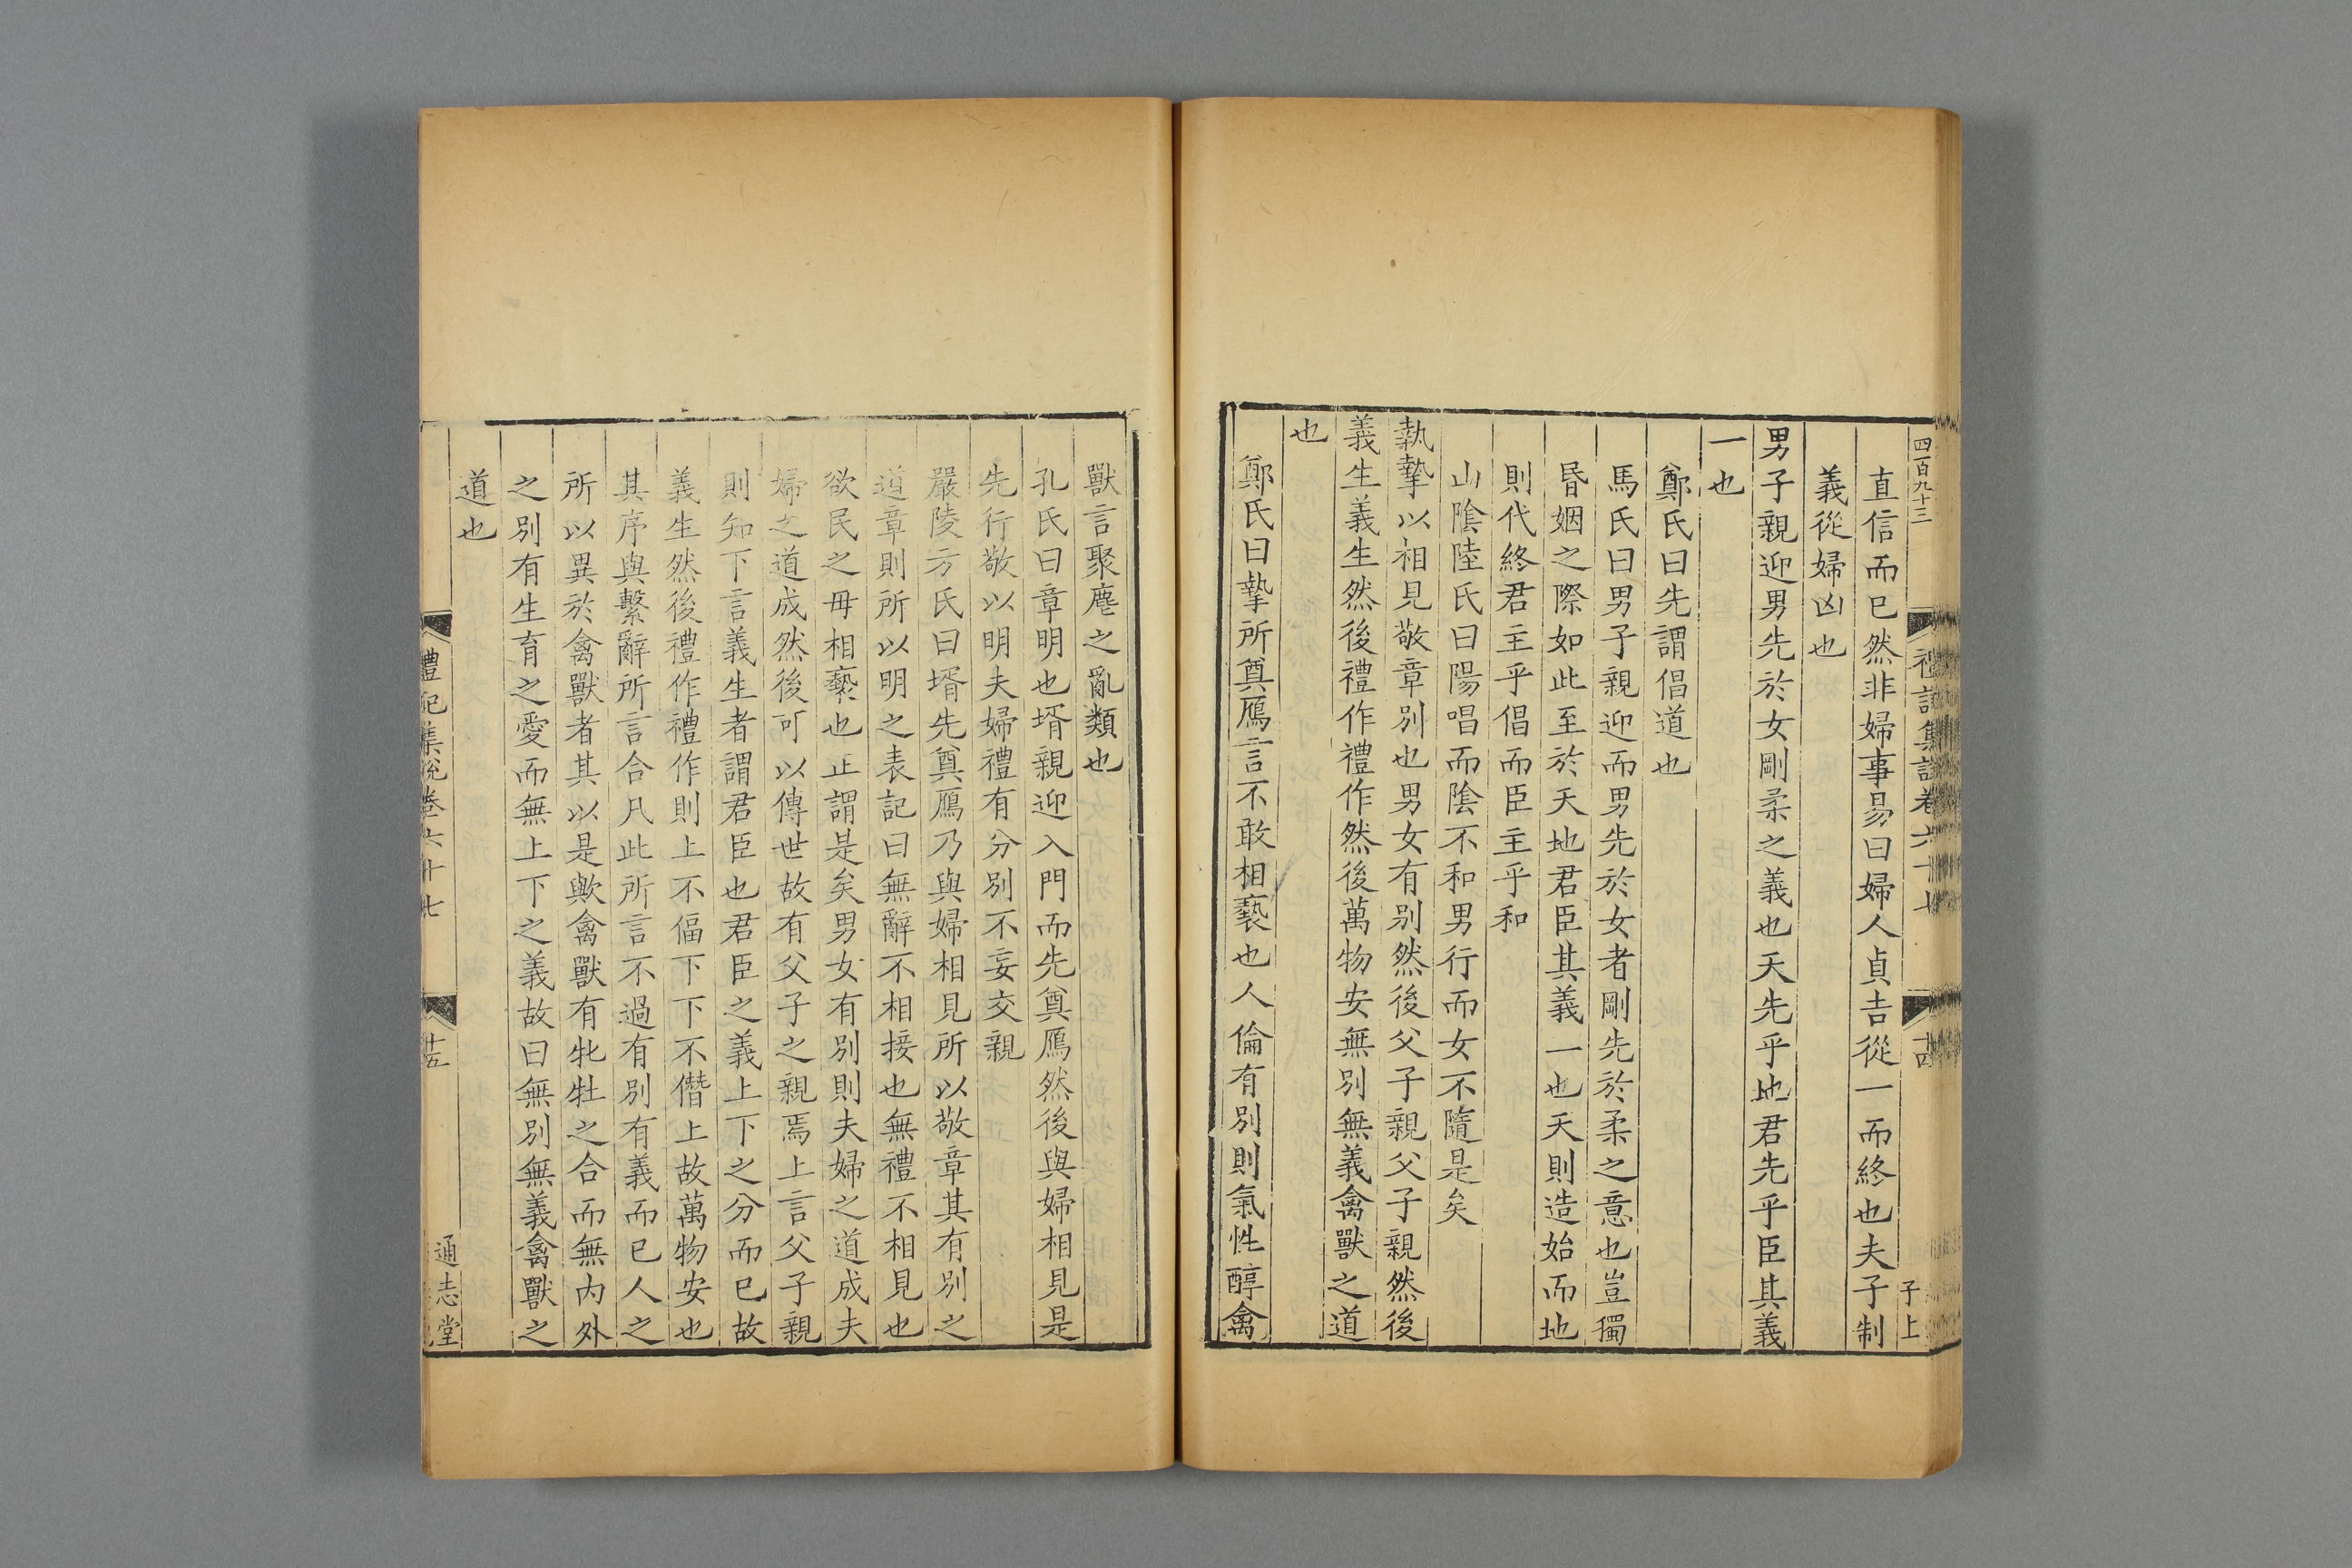 四百九十三
禮記集說卷六十七
十四
子上
直信而已然非婦事易曰婦人貞吉從一而終也夫子制
義從婦凶也
男子親迎男先於女剛柔之義也天先乎地君先乎臣其義
一也
鄭氏曰先謂倡道也
馬氏曰男子親迎而男先於女者剛先於柔之意也豈獨
昏姻之際如此至於天地君臣其義一也天則造始而地
則代終君主乎倡而臣主乎和
山陰陸氏曰陽唱而陰不和男行而女不隨是矣
執摯以相見敬章別也男女有別然後父子親父子親然後
義生義生然後禮作禮作然後萬物安無別無義禽獸之道
也
鄭氏曰摯所奠鴈言不敢相褻也人倫有別則氣性醇禽
獸言聚麀之亂類也
孔氏曰章明也壻親迎入門而先奠鴈然後與婦相見是
先行敬以明夫婦禮有分別不妄交親
嚴陵方氏曰壻先奠鴈乃與婦相見所以敬章其有別之
道章則所以明之表記曰無辭不相接也無禮不相見也
欲民之毋相褻也正謂是矣男女有別則夫婦之道成夫
婦之道成然後可以傳世故有父子之親焉上言父子親
則知下言義生者謂君臣也君臣之義上下之分而已故
義生然後禮作禮作則上不偪下下不僭上故萬物安也
其序與繫辭所言合凡此所言不過有別有義而已人之
所以異於禽獸者其以是歟禽獸有牝牡之合而無內外
之別有生育之愛而無上下之義故曰無別無義禽獸之
道也
禮記集說卷六十七
十五
通志堂